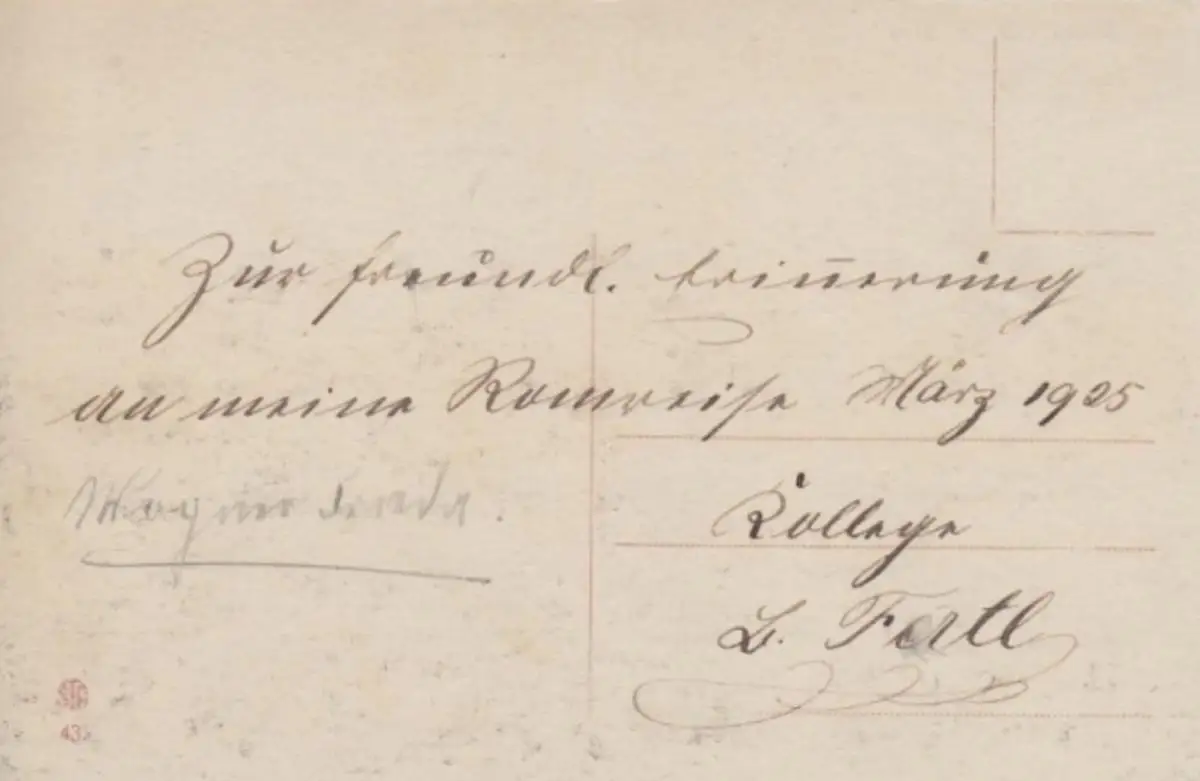 Zur freundl. Erinnerung
an meine Romreise März 1925
Wagner
Kollege
L. Fertl
43